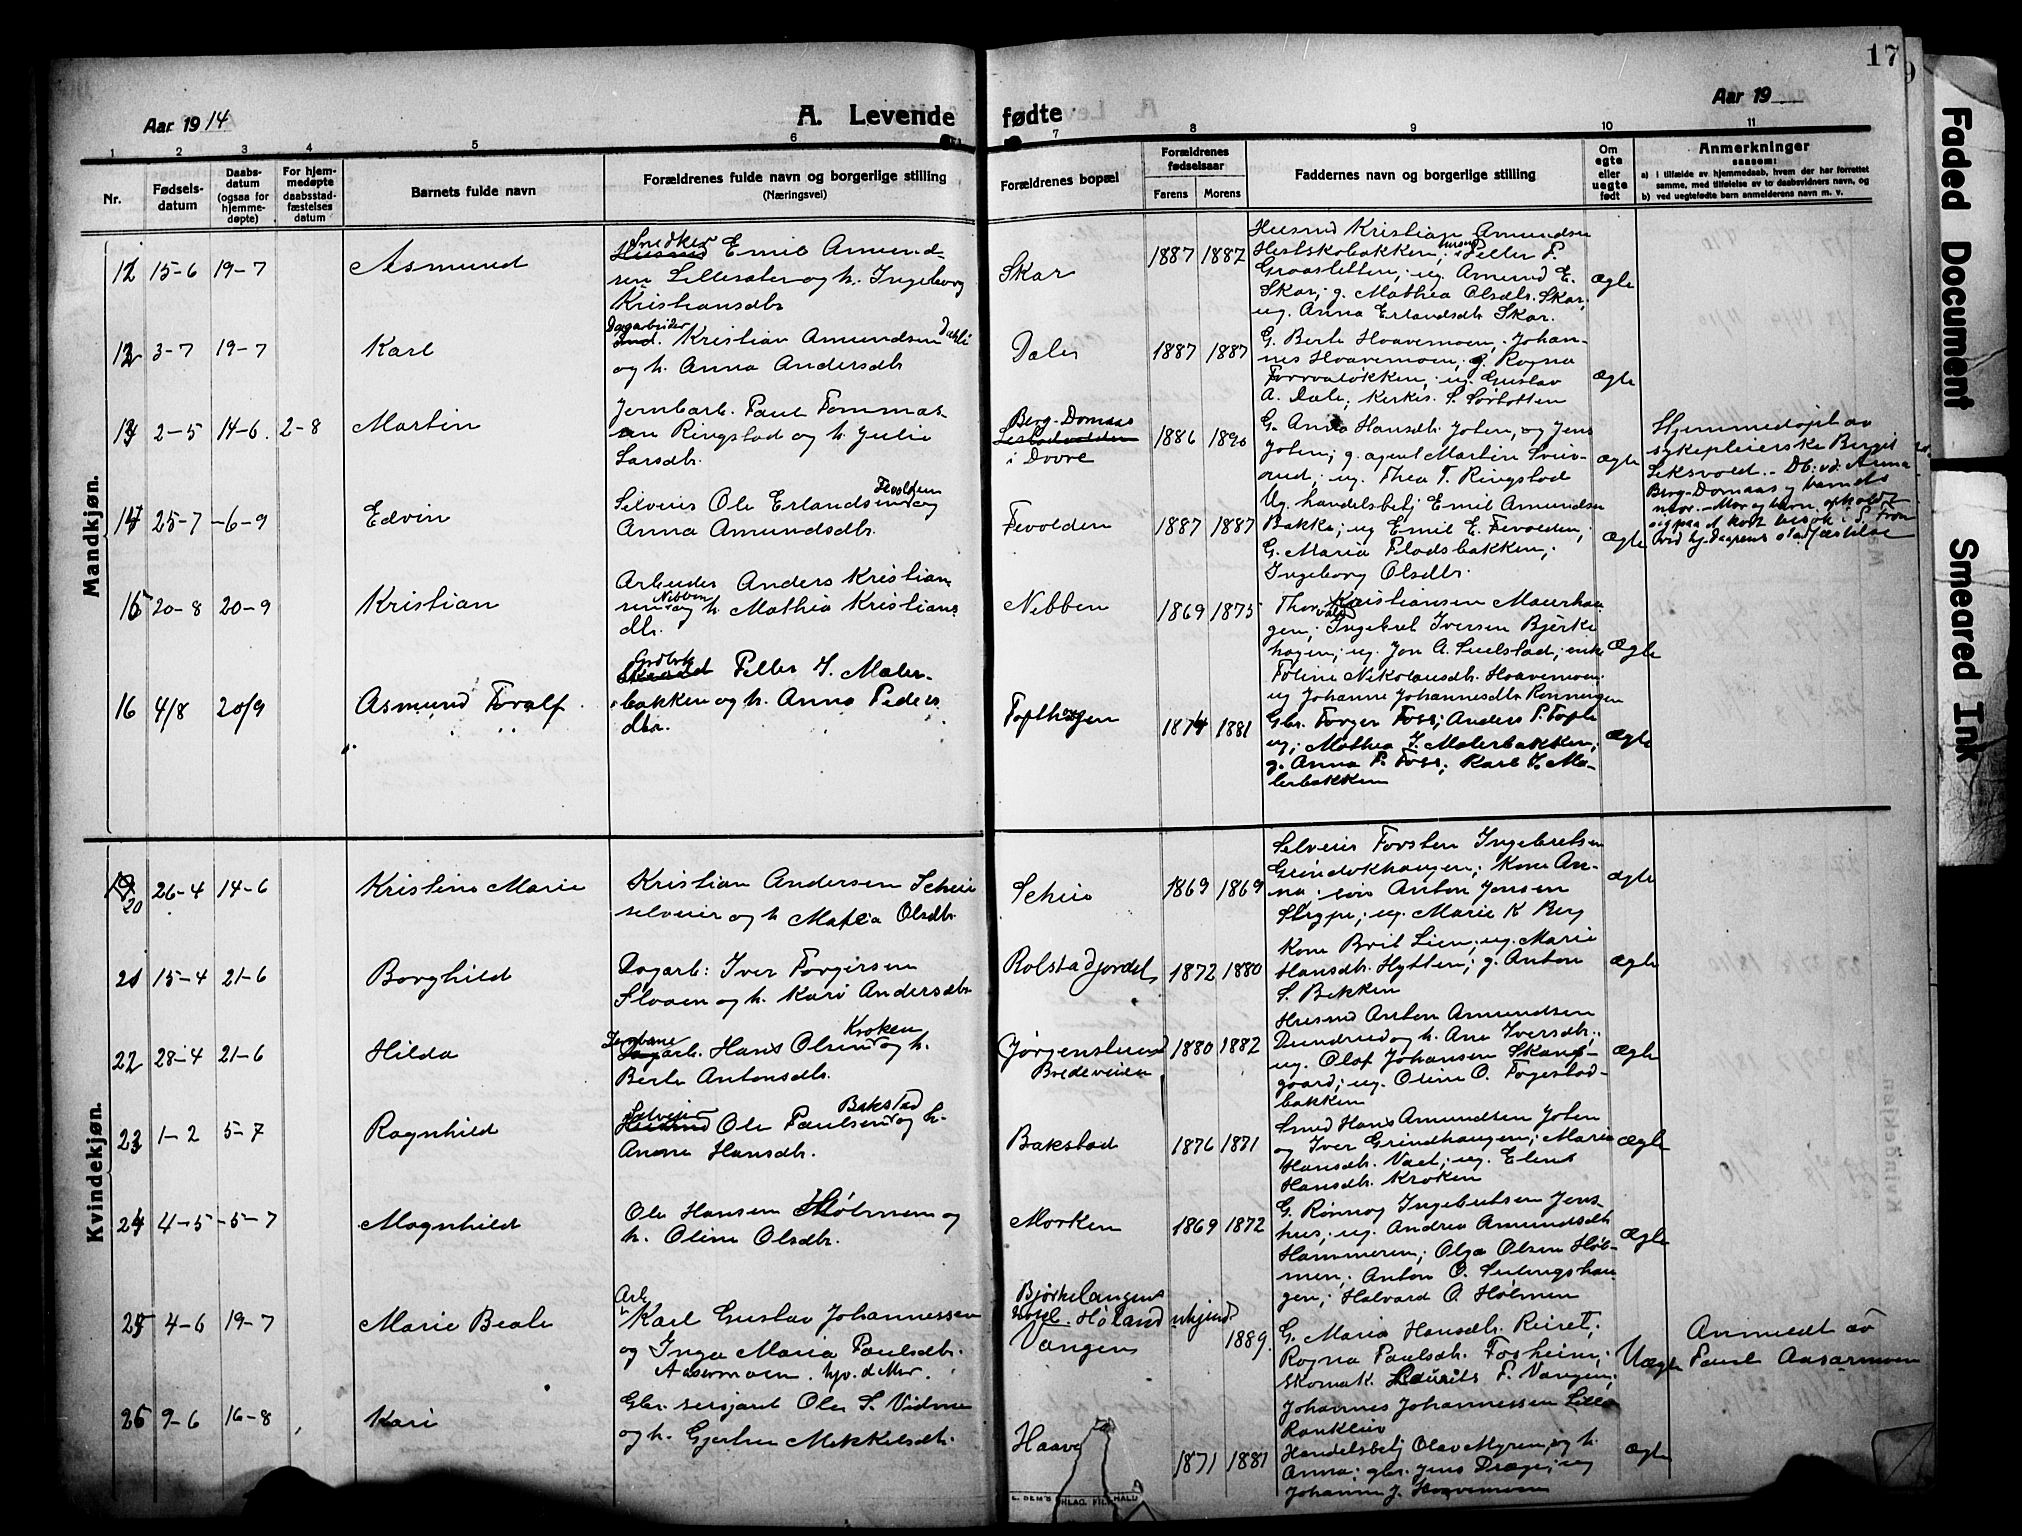 17
9
Faded Document
Smeared Ink
Aar 1914
A. Levende fødte
Aar 19
1 2 3 4 5 6 7 8 9 10 11
Nr.
Fødsels-
datum
Daabs-
datum
(ogsaa for
hjemme-
døpte)
For hjem-
medøpte
daabsstad-
fæstelses
datum
Barnets fulde navn
Forældrenes fulde navn og borgerlige stilling
(Næringsvei)
Forældrenes bopæl
Forældrenes
fødselsaar
Farens Morens
Faddernes navn og borgerlige stilling
Om
egte
eller
uegte
født
Anmerkninger
saasom:
a) i tilfælde av hjemmedaab, hvem der har forrettet
samme, med tilføielse av to daabsvidners navn, og
b) ved uegtefødte barn anmelderens navn m. v.
Mandkjøn.
12 15-6 19-7 Asmund
Snedker
Husmd Emil Amund-
sen Lillesæter og h. Ingeborg
Kristiansdtr
Skar 1887 1887
Husmd Kristian Amundsen
Hestskobakken; Petter P.
Graasletten; ug. Amund E.
Skar; g. Mathea Olsdtr. Skar;
ug. Anna Erlandsdtr Skar.
Ægte
13 3-7 19-7 Karl
Dagarbeider
Ind. Kristian Amundsen Dahle
og h. Anna Andersdtr
Dale 1887 1887
G. Berte Haavemoen; Johan-
nes Haavemoen; g. Ragna
; ug. Gustav
A. Dale; Kirkes. S. Sørtotten
Ægte
14 2-5 14-6. 2-8 Martin
Jernbarb. Paul Tommas-
sen Ringstad og h. Julie
Larsdtr.
Berg-Domaas
i Dovre
1886 1890
G. Anna Hansdtr. Joten, og Jens
Joten; g. agent Martin
; ug. Thea T. Ringstad
Ægte
Hjemmedøpt av
sykepleierske Bergit
Leksvold. - Db. vd. Anna
Berg-Domaas og barnets
mor. - Mor og barn opholdt
sig paa et kort besøk i S. Fron
ved hj. daapens stadfæstelse
14 25-7 -6-9 Edvin
Selveier Ole Erlandsen Fevolden og
Anna Amundsdtr.
Fevolden 1887 1887
Ug. handelsbetj Emil Amundsen
Bakke; ug Emil E. Fevolden;
G. Maria Flodsbakken;
Ingeborg Olsdtr.
Ægte
15 20-8 20-9 Kristian
Arbeider Anders Kristian-
sen Nibben og h. Mathia Kristians
dtr.
Nibben 1869 1875
Thorvald Kristiansen Maurhau
gen; Ingebret Iversen Bjerke
hagen; ug. Jon A. Suelstad; enke
Foline Nikolausdtr. Haavemoen;
ug Johanne Johannesdtr Rønningen
Ægte
16 4/8 20/9 Asmund Toralf
Grdbrk
Petter J. Maler-
bakken og h. Anna Peders
dtr.
Tofthagen 1874 1881
Gbr. Torger Foss; Anders P. Tofte
ug; Mathea J. Malerbakken;
g. Anna P. Foss; Karl J. Ma-
lerbakken
Ægte
Kvindekjøn.
19 20 26-4 14-6 Kristine Marie
Kristian Andersen Scheie
selveier og h Matea Olsdtr
Scheie 1869 1869
Selveier Torsten Ingebretsen
Grindokhaugen; Kone An-
na; Anton Jonsen
Skrype; ug. Marie K Berg
Ægte
21 15-4 21-6 Borghild
Dagarb: Iver Torgersen
Sloaen og h. Kari Andersdtr
Rolstadjordet 1872 1880
Kone Brit Lien; ug. Marie
Hansdtr. Hytten; g. Anton
S. Bakken
Ægte
22 28-4 21-6 Hilda
Jernbane
Dagarb. Hans Olsen Kroken og h.
Berte Antonsdtr.
Jørgenstuen
Bredeveien
1880 1882
Husmd Anton Amundsen
Rundrud og h. Ane Iversdtr.;
ug. Olaf Johansen Skans-
gaard; ug. Oline O. Fogestad-
bakken
Ægte
23 1-2 5-7 Ragnhild
Selveier
Husmd Ole Paulsen Bakstad og h.
Anne Hansdtr.
Bakstad 1876 1871
Smed Hans Amundsen Joten
og Iver Grindhaugen; Marie
Hansdtr. Vael; ug. Eline
Hansdtr Kroken
Ægte
24 4-5 -5-7 Magnhild
Ole Hansen Hølmen og
h. Oline Olsdtr.
Morken 1869 1872
G. Rønnog Ingebretsen Jens-
hus; ug. Andrea Amundsdtr
Hammeren; Olga Olsen Høl-
men; Anton O. Sulingshau
gen; Halvard O. Hølmen
Ægte
25 4-6 19-7 Marie Beate
Arb
Karl Gustav Johannessen
og Inga Maria Paulsdtr.
Aasarmoen
Bjørkelangens
hotel. Høland
Vangen
ukjend 1889.
G. Maria Hansdtr. Ruiret;
Ragna Paulsdtr. Forheim;
skomak. Laurits P. Vangen;
Johannes Johannessen Lille
Rankleiv
Uægte
Anmeldt av
Paul Aasarmoen
26 9-6 16-8 Kari
Gbr. sersjant Ole S. Vidme
og h. Gjertru Mikkelsdtr.
Haave 1871 1881
Handelsbetj Olav Myren og h.
Anna; gbr. Jens Dræge; ug
Johanne J. Haavemoen
Ægte